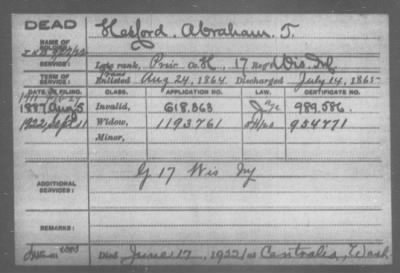 DEAD
NAME OF SOLDIER: Hesford, Abraham. T.
SERVICE: Late rank, Priv. Co. H, 17 Reg't Wis. Inf.
TERM OF SERVICE: Enlisted Aug 24, 1864. Discharged July 14, 1865
DATE OF FILING. CLASS. APPLICATION NO. LAW. CERTIFICATE NO.
1887 Aug 5 Invalid, 618.363 989,586.
1922 Sept 11 Widow, 1193761 954771
Minor,
ADDITIONAL SERVICES: G 17 Wis Inf
REMARKS:
Died June 17, 1922, at Centralia, Wash